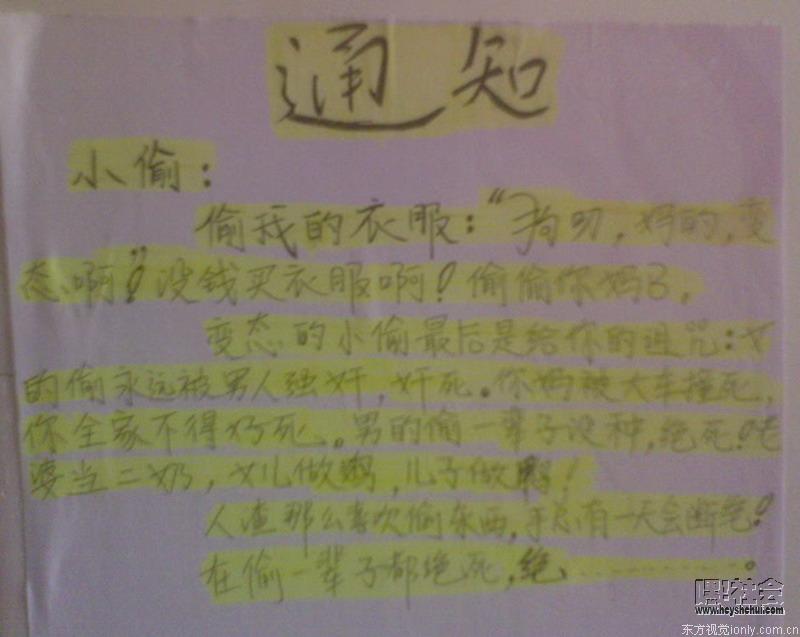 通知
小偷：
偷我的衣服：“狗日，妈的，变
态啊！”没钱买衣服啊！偷偷你妈了，
变态的小偷最后是给你的诅咒：女
的偷永远被男人强奸，奸死。你妈被大车撞死，
你全家不得好死。男的偷一辈子没种，绝死！老
婆当二奶，女儿做鸡，儿子做鸭！
人渣那么喜欢偷东西，手总有一天会断绝！
在偷一辈子都绝死，绝…………。
黑社会
www.heyshehui.com
东方视觉ionly.com.cn